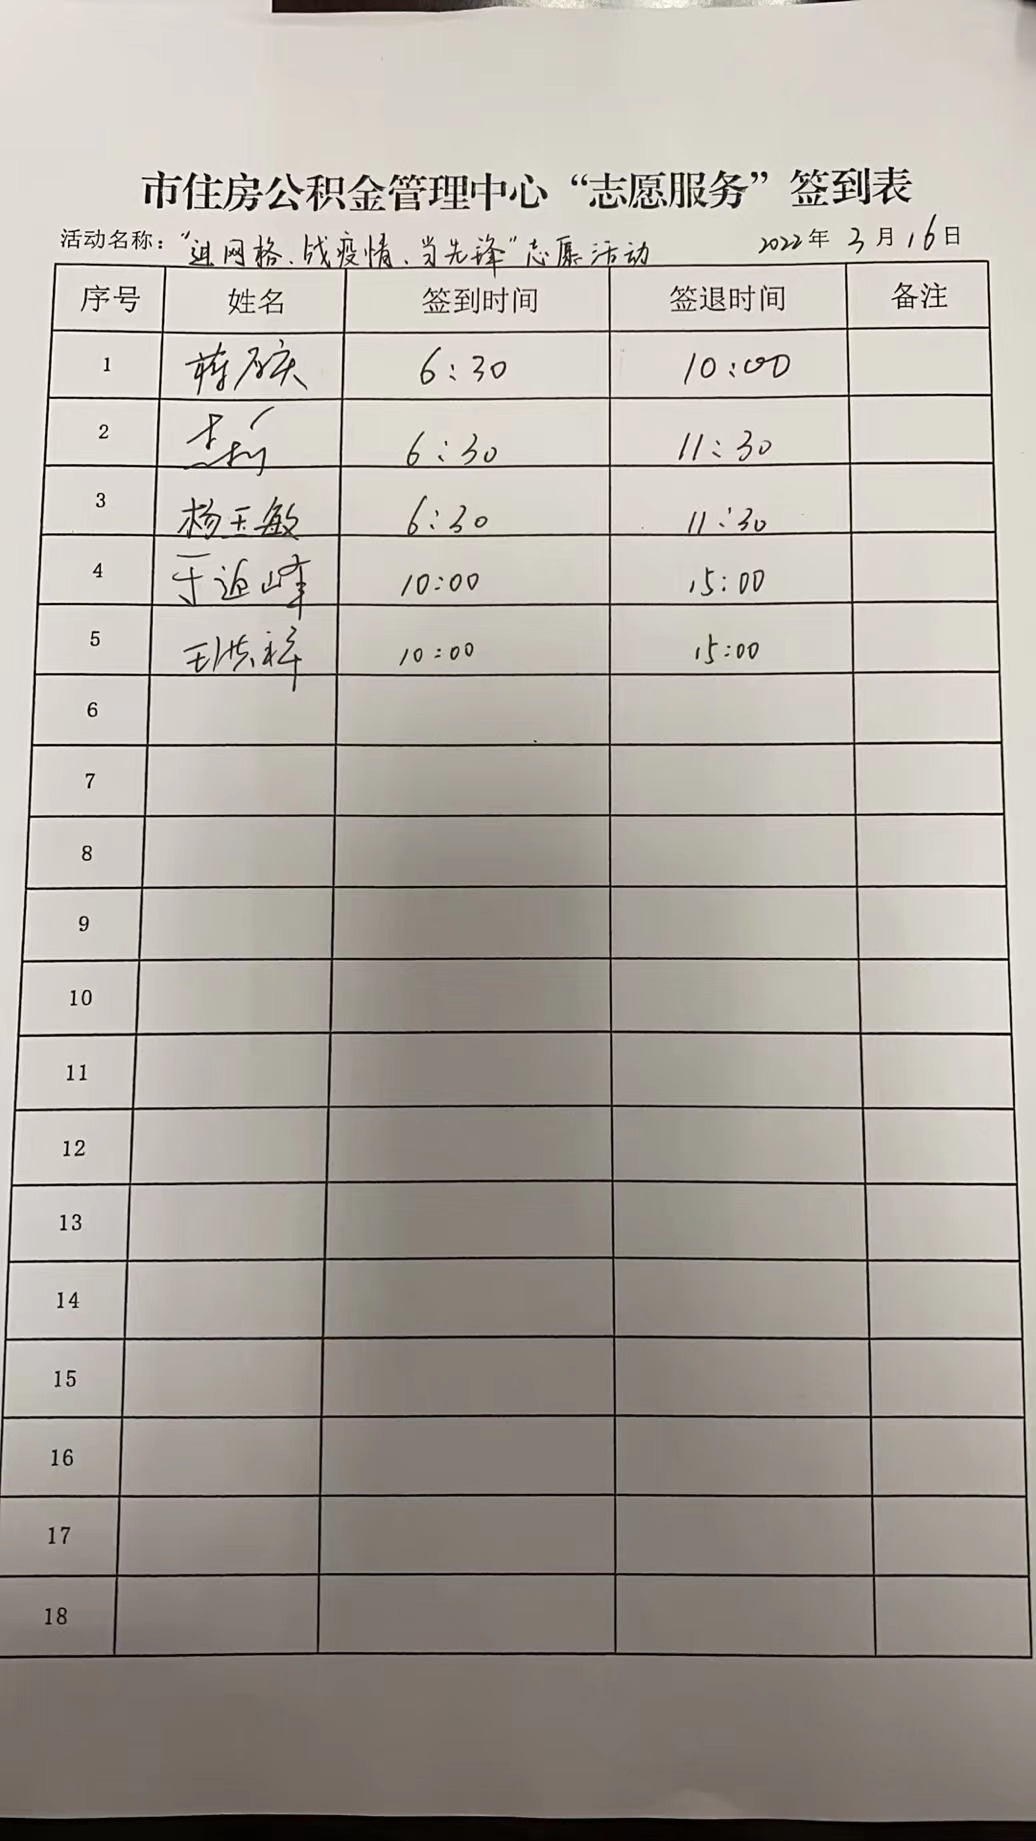 市住房公积金管理中心“志愿服务”签到表
活动名称：“进网格、战疫情、当先锋”志愿活动 2022年 3月16日
序号 姓名 签到时间 签退时间 备注
1 6:30 10:00
2 6:30 11:30
3 杨玉敏 6:30 11:30
4 于迎峰 10:00 15:00
5 王洪祥 10:00 15:00
6
7
8
9
10
11
12
13
14
15
16
17
18